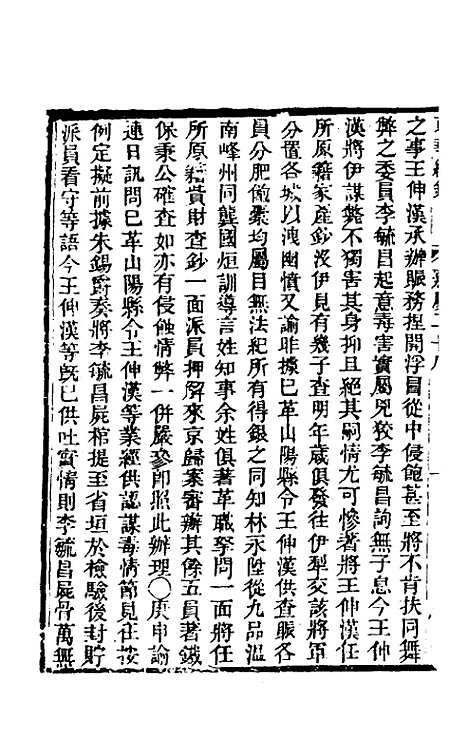 之事王伸漢承辦賑務捏開浮冒從中侵飽甚至將不肯扶同舞
弊之委員李毓昌起意毒害實屬兇狡李毓昌詢無子息今王伸
漢將伊謀斃不獨害其身抑且絕其嗣情尤可慘著將王伸漢任
所原籍家產鈔沒伊見有幾子查明年歲俱發往伊犁交該將軍
分置各城以洩幽憤又諭昨據已革山陽縣令王伸漢供查賑各
員分肥飽橐均屬目無法紀所有得銀之同知林永陞從九品溫
南峰州同龔國烜訓導言姓知事余姓俱著革職拏問一面將任
所原籍貲財查鈔一面派員押解來京歸案審辦其餘五員著鐵
保秉公確查如亦有侵蝕情弊一併嚴叅卽照此辦理〇庚申諭
連日訊問已革山陽縣令王伸漢等業經供認謀毒情節見在按
例定擬前據朱錫爵奏將李毓昌屍棺提至省垣於檢驗後封貯
派員看守等語今王伸漢等旣已供吐實情則李毓昌屍骨萬無